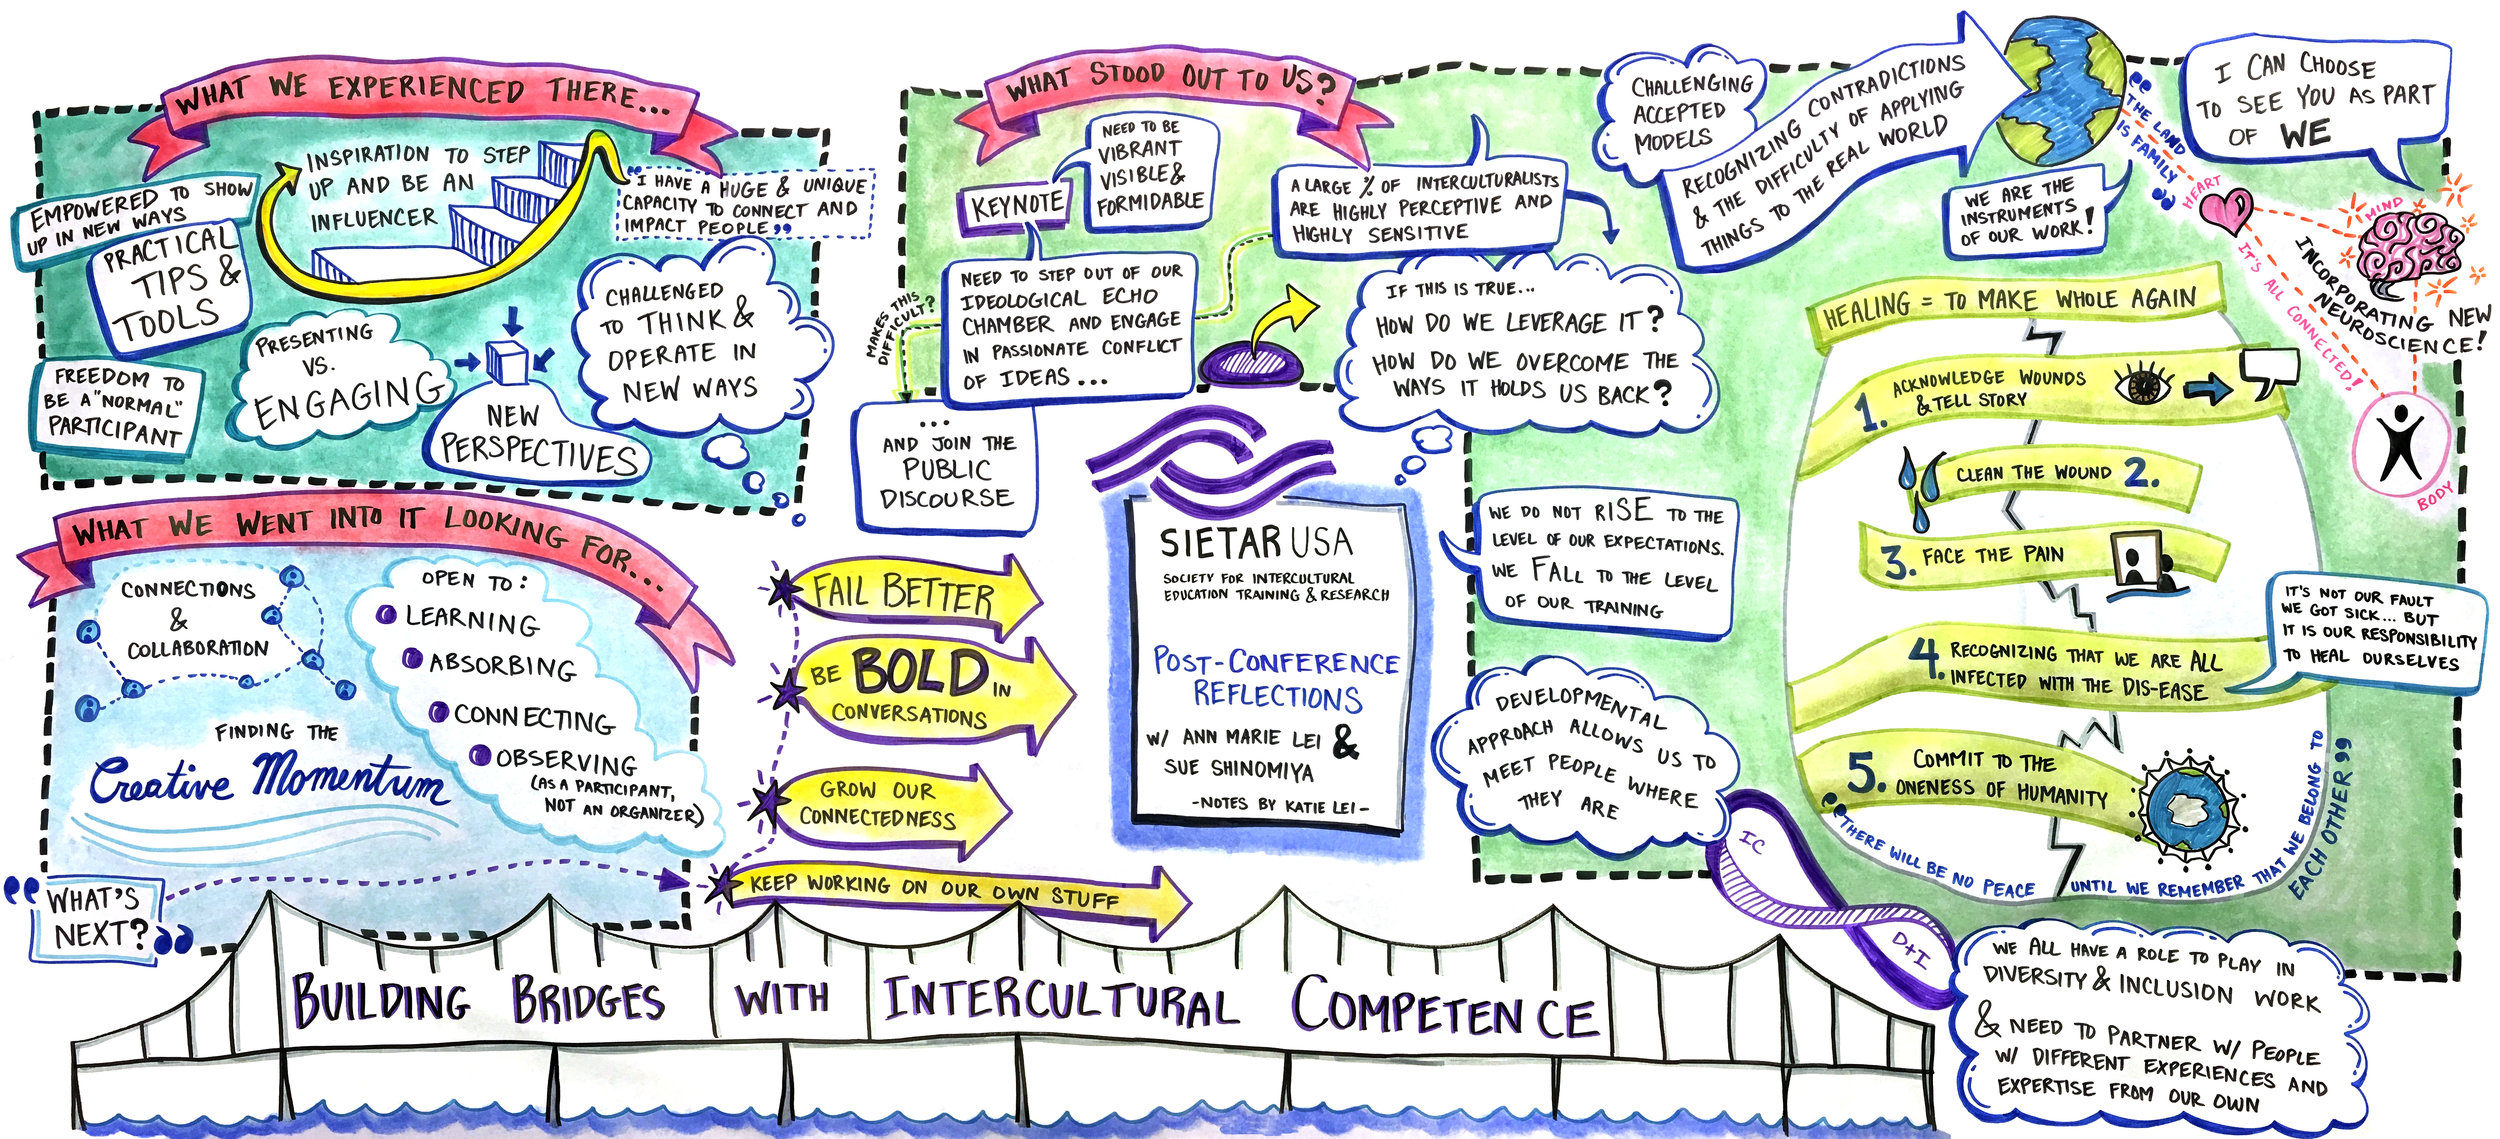 WHAT WE EXPERIENCED THERE...
INSPIRATION TO STEP
UP AND BE AN
INFLUENCER
"I HAVE A HUGE & UNIQUE
CAPACITY TO CONNECT AND
IMPACT PEOPLE"
EMPOWERED TO SHOW
UP IN NEW WAYS
PRACTICAL
TIPS &
TOOLS
FREEDOM TO
BE A "NORMAL"
PARTICIPANT
PRESENTING
VS.
ENGAGING
NEW
PERSPECTIVES
CHALLENGED
TO THINK &
OPERATE IN
NEW WAYS
WHAT WE WENT INTO IT LOOKING FOR...
CONNECTIONS
&
COLLABORATION
FINDING THE
Creative Momentum
OPEN TO:
LEARNING
ABSORBING
CONNECTING
OBSERVING
(AS A PARTICIPANT,
NOT AN ORGANIZER)
"WHAT'S
NEXT?"
FAIL BETTER
BE BOLD IN
CONVERSATIONS
GROW OUR
CONNECTEDNESS
KEEP WORKING ON OUR OWN STUFF
WHAT STOOD OUT TO US?
KEYNOTE
NEED TO BE
VIBRANT
VISIBLE &
FORMIDABLE
NEED TO STEP OUT OF OUR
IDEOLOGICAL ECHO
CHAMBER AND ENGAGE
IN PASSIONATE CONFLICT
OF IDEAS...
MAKES THIS
DIFFICULT?
...
AND JOIN THE
PUBLIC
DISCOURSE
A LARGE % OF INTERCULTURALISTS
ARE HIGHLY PERCEPTIVE AND
HIGHLY SENSITIVE
IF THIS IS TRUE...
HOW DO WE LEVERAGE IT?
HOW DO WE OVERCOME THE
WAYS IT HOLDS US BACK?
SIETAR USA
SOCIETY FOR INTERCULTURAL
EDUCATION TRAINING & RESEARCH
POST-CONFERENCE
REFLECTIONS
W/ ANN MARIE LEI &
SUE SHINOMIYA
-NOTES BY KATIE LEI-
CHALLENGING
ACCEPTED
MODELS
RECOGNIZING CONTRADICTIONS
& THE DIFFICULTY OF APPLYING
THINGS TO THE REAL WORLD
"THE LAND
IS FAMILY"
WE ARE THE
INSTRUMENTS
OF OUR WORK!
I CAN CHOOSE
TO SEE YOU AS PART
OF WE
HEART
MIND
BODY
IT'S ALL CONNECTED!
INCORPORATING NEW
NEUROSCIENCE!
WE DO NOT RISE TO THE
LEVEL OF OUR EXPECTATIONS.
WE FALL TO THE LEVEL
OF OUR TRAINING
DEVELOPMENTAL
APPROACH ALLOWS US TO
MEET PEOPLE WHERE
THEY ARE
IC
D+I
WE ALL HAVE A ROLE TO PLAY IN
DIVERSITY & INCLUSION WORK
& NEED TO PARTNER W/ PEOPLE
W/ DIFFERENT EXPERIENCES AND
EXPERTISE FROM OUR OWN
HEALING = TO MAKE WHOLE AGAIN
1. ACKNOWLEDGE WOUNDS
& TELL STORY
CLEAN THE WOUND 2.
3. FACE THE PAIN
4. RECOGNIZING THAT WE ARE ALL
INFECTED WITH THE DIS-EASE
IT'S NOT OUR FAULT
WE GOT SICK... BUT
IT IS OUR RESPONSIBILITY
TO HEAL OURSELVES
5. COMMIT TO THE
ONENESS OF HUMANITY
"THERE WILL BE NO PEACE UNTIL WE REMEMBER THAT WE BELONG TO
EACH OTHER"
BUILDING BRIDGES WITH INTERCULTURAL COMPETENCE